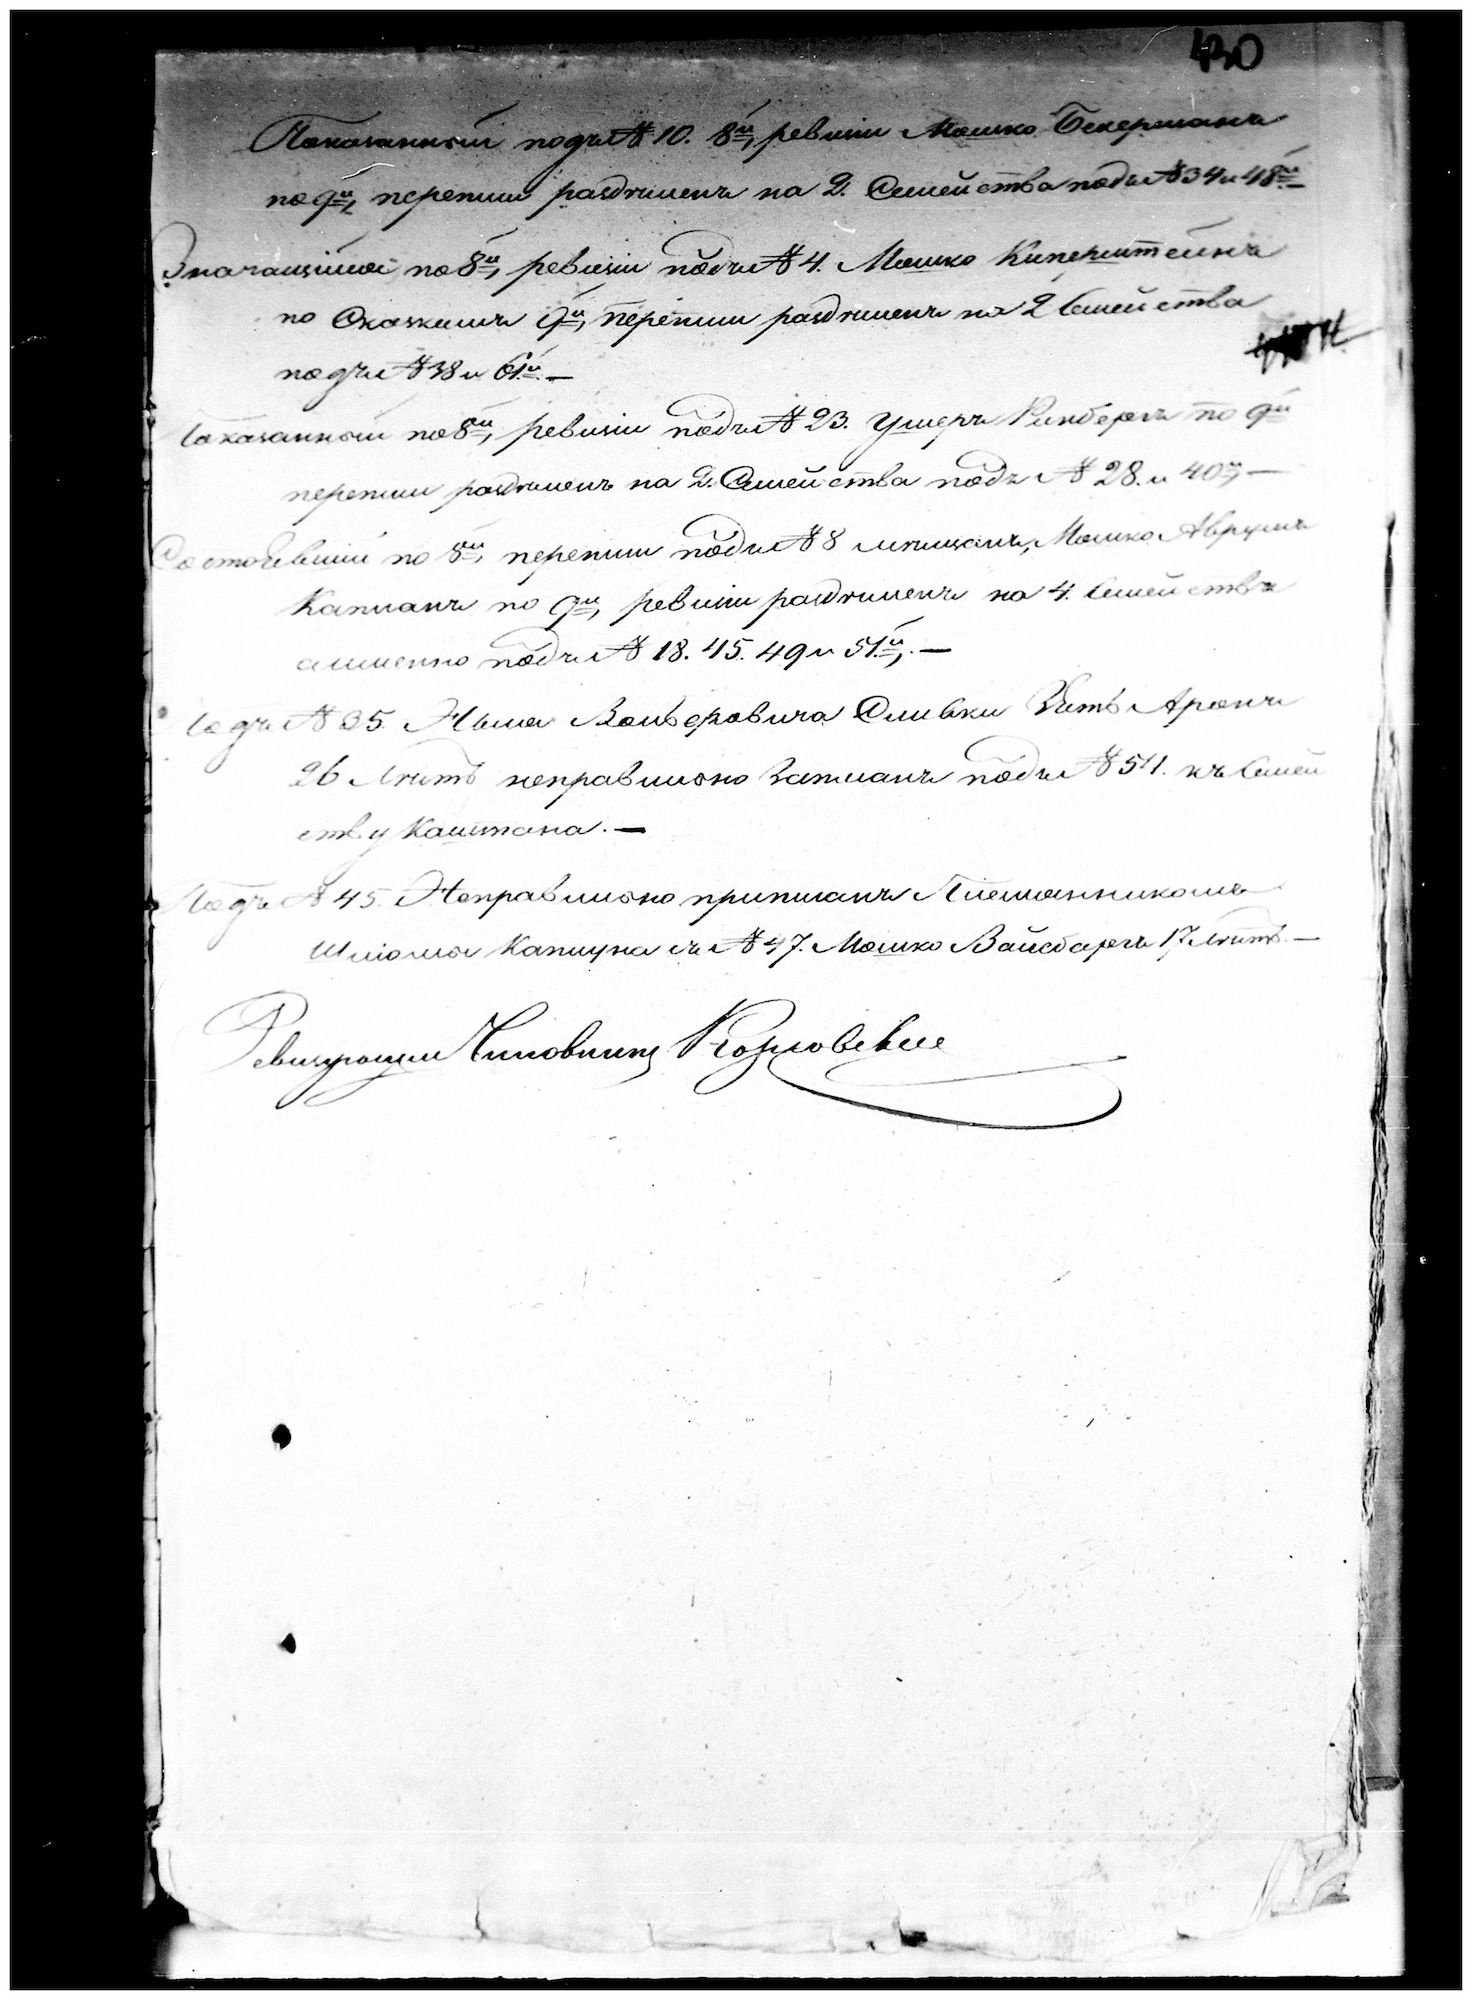 430
Показанный подъ № 10. 8й ревизіи Мошко Бекерманъ
по 9й переписи раздѣленъ на 2. Семейства подъ № 34 и 48й.—
Значащійся по 8й ревизіи подъ № 4. Мошко Куперштейнъ
по Сказкамъ 9й переписи раздѣленъ на 2 Семейства
подъ № 38 и 61й.—
Показанный по 8й ревизіи подъ № 23. Ушеръ по 9й
переписи раздѣленъ на 2. Семейства подъ № 28. и 40й—
Состоявшій по 8й переписи подъ № 8 мѣщанинъ Мошко Аврумъ
Капланъ по 9й ревизіи раздѣленъ на 4. Семействъ
а именно подъ № 18. 45. 49 и 51й.—
Подъ № Сливки Зять Аронъ
26 лѣтъ неправильно записанъ подъ № 54. къ Семей
ству Каштана.—
Подъ № 45. Неправильно приписанъ Племянникомъ
Шліома съ № 47. Мошко Вайсбергъ 17 лѣтъ.—
Ревизующій Чиновникъ